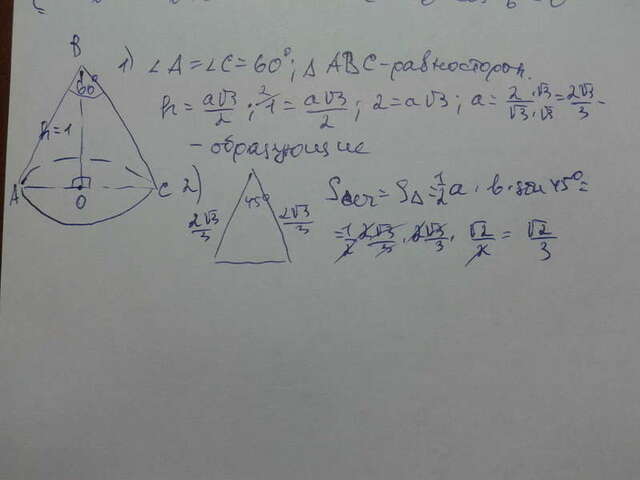 B
60°
h=1
A
O
C
1) ∠A=∠C=60°; △ABC-равносторон.
h = a√3/2; 1 = a√3/2; 2 = a√3; a = 2·√3/√3·√3 = 2√3/3 -
- образующие
2)
45°
2√3/3
2√3/3
Sсеч = S△ = 1/2 a · b · sin 45° =
= 1/2 · 2√3/3 · 2√3/3 · √2/2 = √2/3